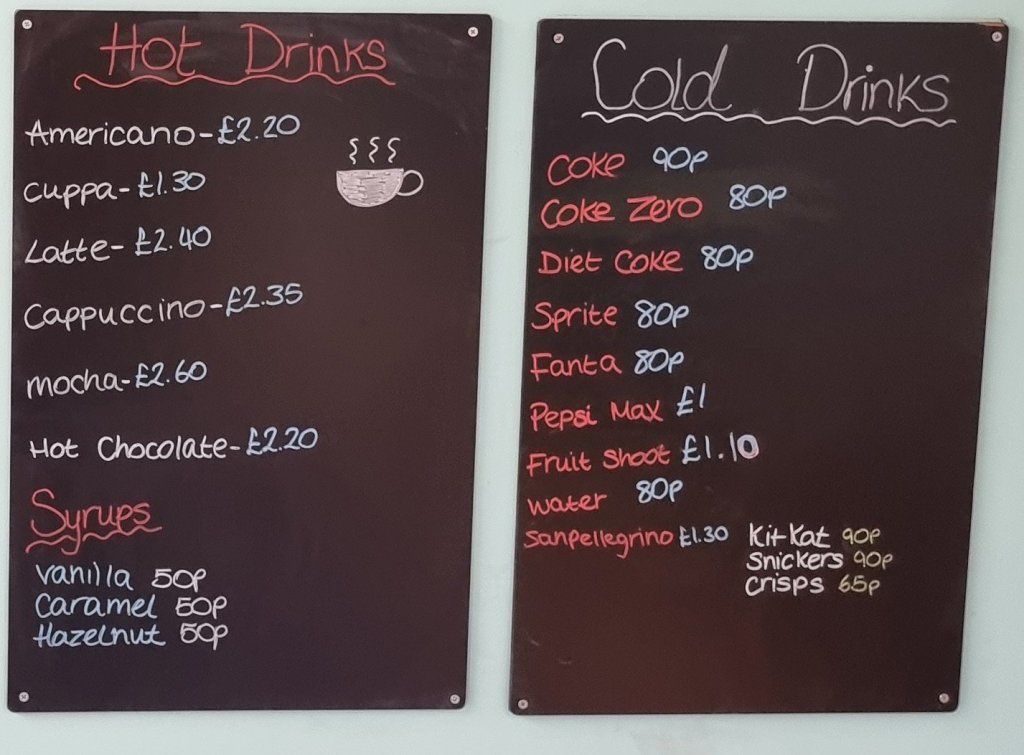 Hot Drinks
Americano - £2.20
Cuppa - £1.30
Latte - £2.40
Cappuccino - £2.35
Mocha - £2.60
Hot Chocolate - £2.20
Syrups
Vanilla 50p
Caramel 50p
Hazelnut 50p
Cold Drinks
Coke 90p
Coke Zero 80p
Diet Coke 80p
Sprite 80p
Fanta 80p
Pepsi Max £1
Fruit Shoot £1.10
Water 80p
Sanpellegrino £1.30
KitKat 90p
Snickers 90p
Crisps 65p